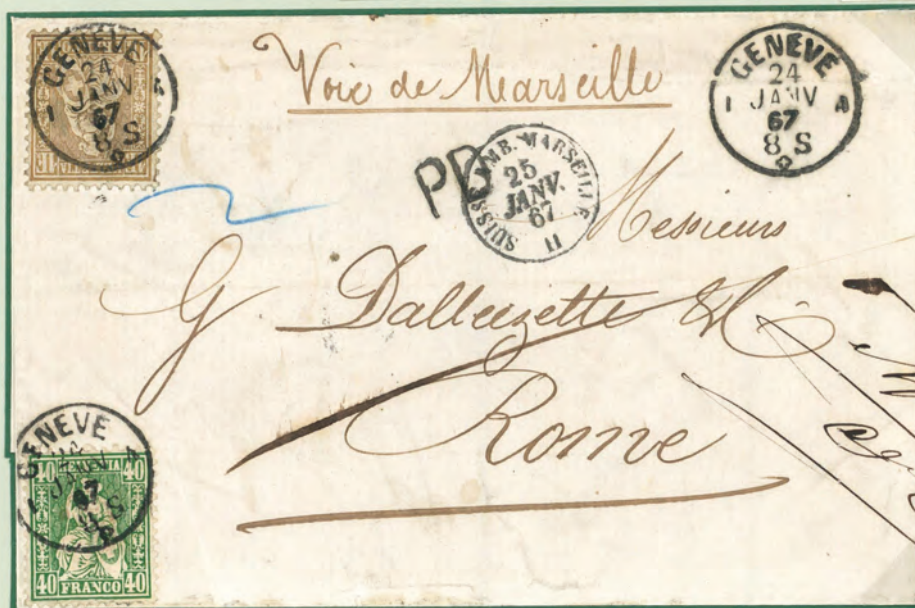 GENÈVE
24
JANV
67
8 S
I A
Voie de Marseille
GENÈVE
24
JANV
67
8 S
I A
PD
SUISSE AMB. MARSEILLE
25
JANV.
67
II
Messieurs
G Dalleizette & Cie
Rome
GENÈVE
JANV
67
8 S
I A
40 HELVETIA 40
40 FRANCO 40